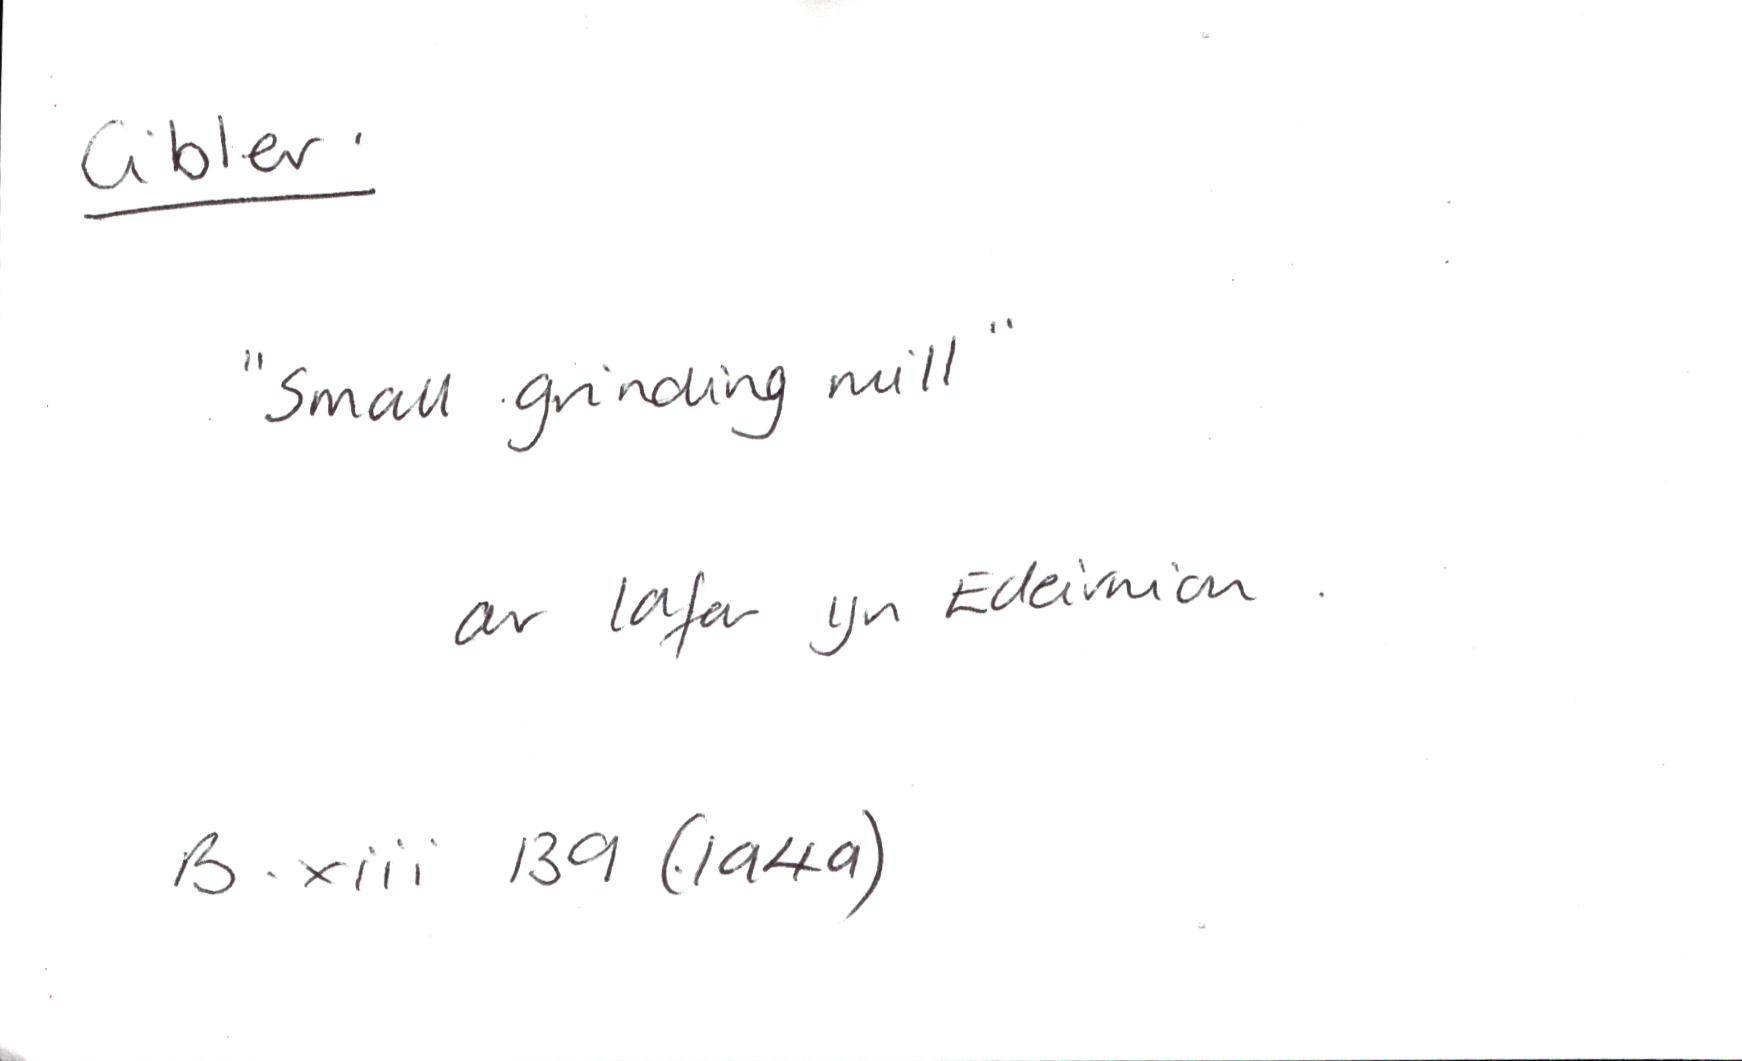 Cibler.
"Small grinding mill"
ar lafar yn Edeirnion.
B. xiii 139 (1949)